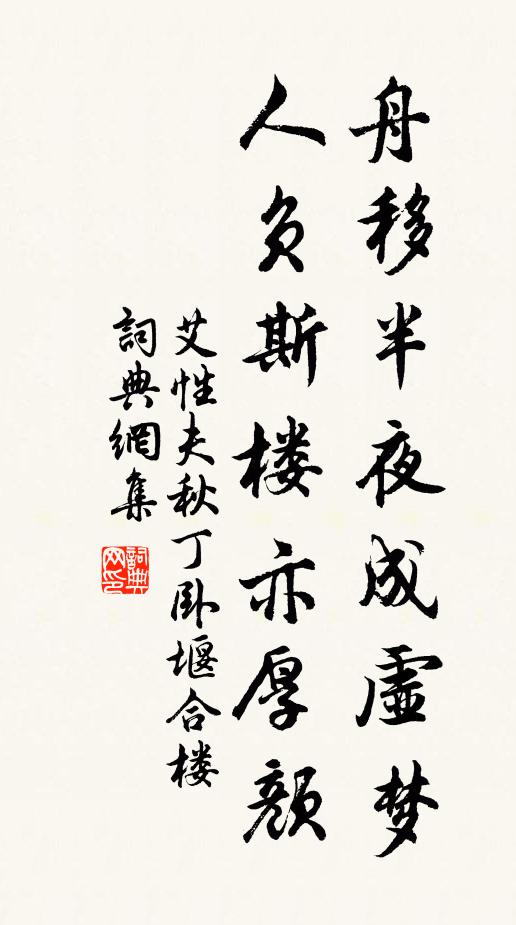 舟移半夜成虚梦
人负斯楼亦厚颜
艾性夫秋丁卧堰合楼
詞典網集
詞典网印